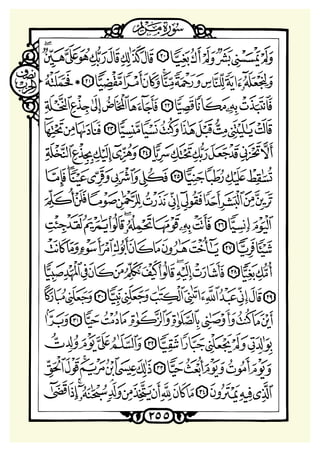 سورة مريم
وَلَمْ يَمْسَسْنِي بَشَرٌ وَلَمْ أَكُ بَغِيًّا ٢٠ قَالَ كَذَٰلِكِ قَالَ رَبُّكِ هُوَ عَلَيَّ هَيِّنٌ
وَلِنَجْعَلَهُ ءَايَةً لِلنَّاسِ وَرَحْمَةً مِنَّا وَكَانَ أَمْرًا مَقْضِيًّا ٢١ فَحَمَلَتْهُ
فَانْتَبَذَتْ بِهِ مَكَانًا قَصِيًّا ٢٢ فَأَجَاءَهَا الْمَخَاضُ إِلَىٰ جِذْعِ النَّخْلَةِ
قَالَتْ يَٰلَيْتَنِي مِتُّ قَبْلَ هَٰذَا وَكُنْتُ نَسْيًا مَنْسِيًّا ٢٣ فَنَادَىٰهَا مِنْ تَحْتِهَا
أَلَّا تَحْزَنِي قَدْ جَعَلَ رَبُّكِ تَحْتَكِ سَرِيًّا ٢٤ وَهُزِّي إِلَيْكِ بِجِذْعِ النَّخْلَةِ
تُسَٰقِطْ عَلَيْكِ رُطَبًا جَنِيًّا ٢٥ فَكُلِي وَاشْرَبِي وَقَرِّي عَيْنًا فَإِمَّا
تَرَيِنَّ مِنَ الْبَشَرِ أَحَدًا فَقُولِي إِنِّي نَذَرْتُ لِلرَّحْمَٰنِ صَوْمًا فَلَنْ أُكَلِّمَ
الْيَوْمَ إِنْسِيًّا ٢٦ فَأَتَتْ بِهِ قَوْمَهَا تَحْمِلُهُ قَالُوا يَٰمَرْيَمُ لَقَدْ جِئْتِ
شَيْئًا فَرِيًّا ٢٧ يَٰأُخْتَ هَٰرُونَ مَا كَانَ أَبُوكِ امْرَأَ سَوْءٍ وَمَا كَانَتْ
أُمُّكِ بَغِيًّا ٢٨ فَأَشَارَتْ إِلَيْهِ قَالُوا كَيْفَ نُكَلِّمُ مَنْ كَانَ فِي الْمَهْدِ صَبِيًّا
٢٩ قَالَ إِنِّي عَبْدُ اللَّهِ ءَاتَىٰنِيَ الْكِتَٰبَ وَجَعَلَنِي نَبِيًّا ٣٠ وَجَعَلَنِي مُبَارَكًا
أَيْنَ مَا كُنْتُ وَأَوْصَٰنِي بِالصَّلَوٰةِ وَالزَّكَوٰةِ مَا دُمْتُ حَيًّا ٣١ وَبَرًّا
بِوَٰلِدَتِي وَلَمْ يَجْعَلْنِي جَبَّارًا شَقِيًّا ٣٢ وَالسَّلَٰمُ عَلَيَّ يَوْمَ وُلِدْتُ
وَيَوْمَ أَمُوتُ وَيَوْمَ أُبْعَثُ حَيًّا ٣٣ ذَٰلِكَ عِيسَى ابْنُ مَرْيَمَ قَوْلَ الْحَقِّ
الَّذِي فِيهِ يَمْتَرُونَ ٣٤ مَا كَانَ لِلَّهِ أَنْ يَتَّخِذَ مِنْ وَلَدٍ سُبْحَٰنَهُ إِذَا قَضَىٰ
٢٥٥